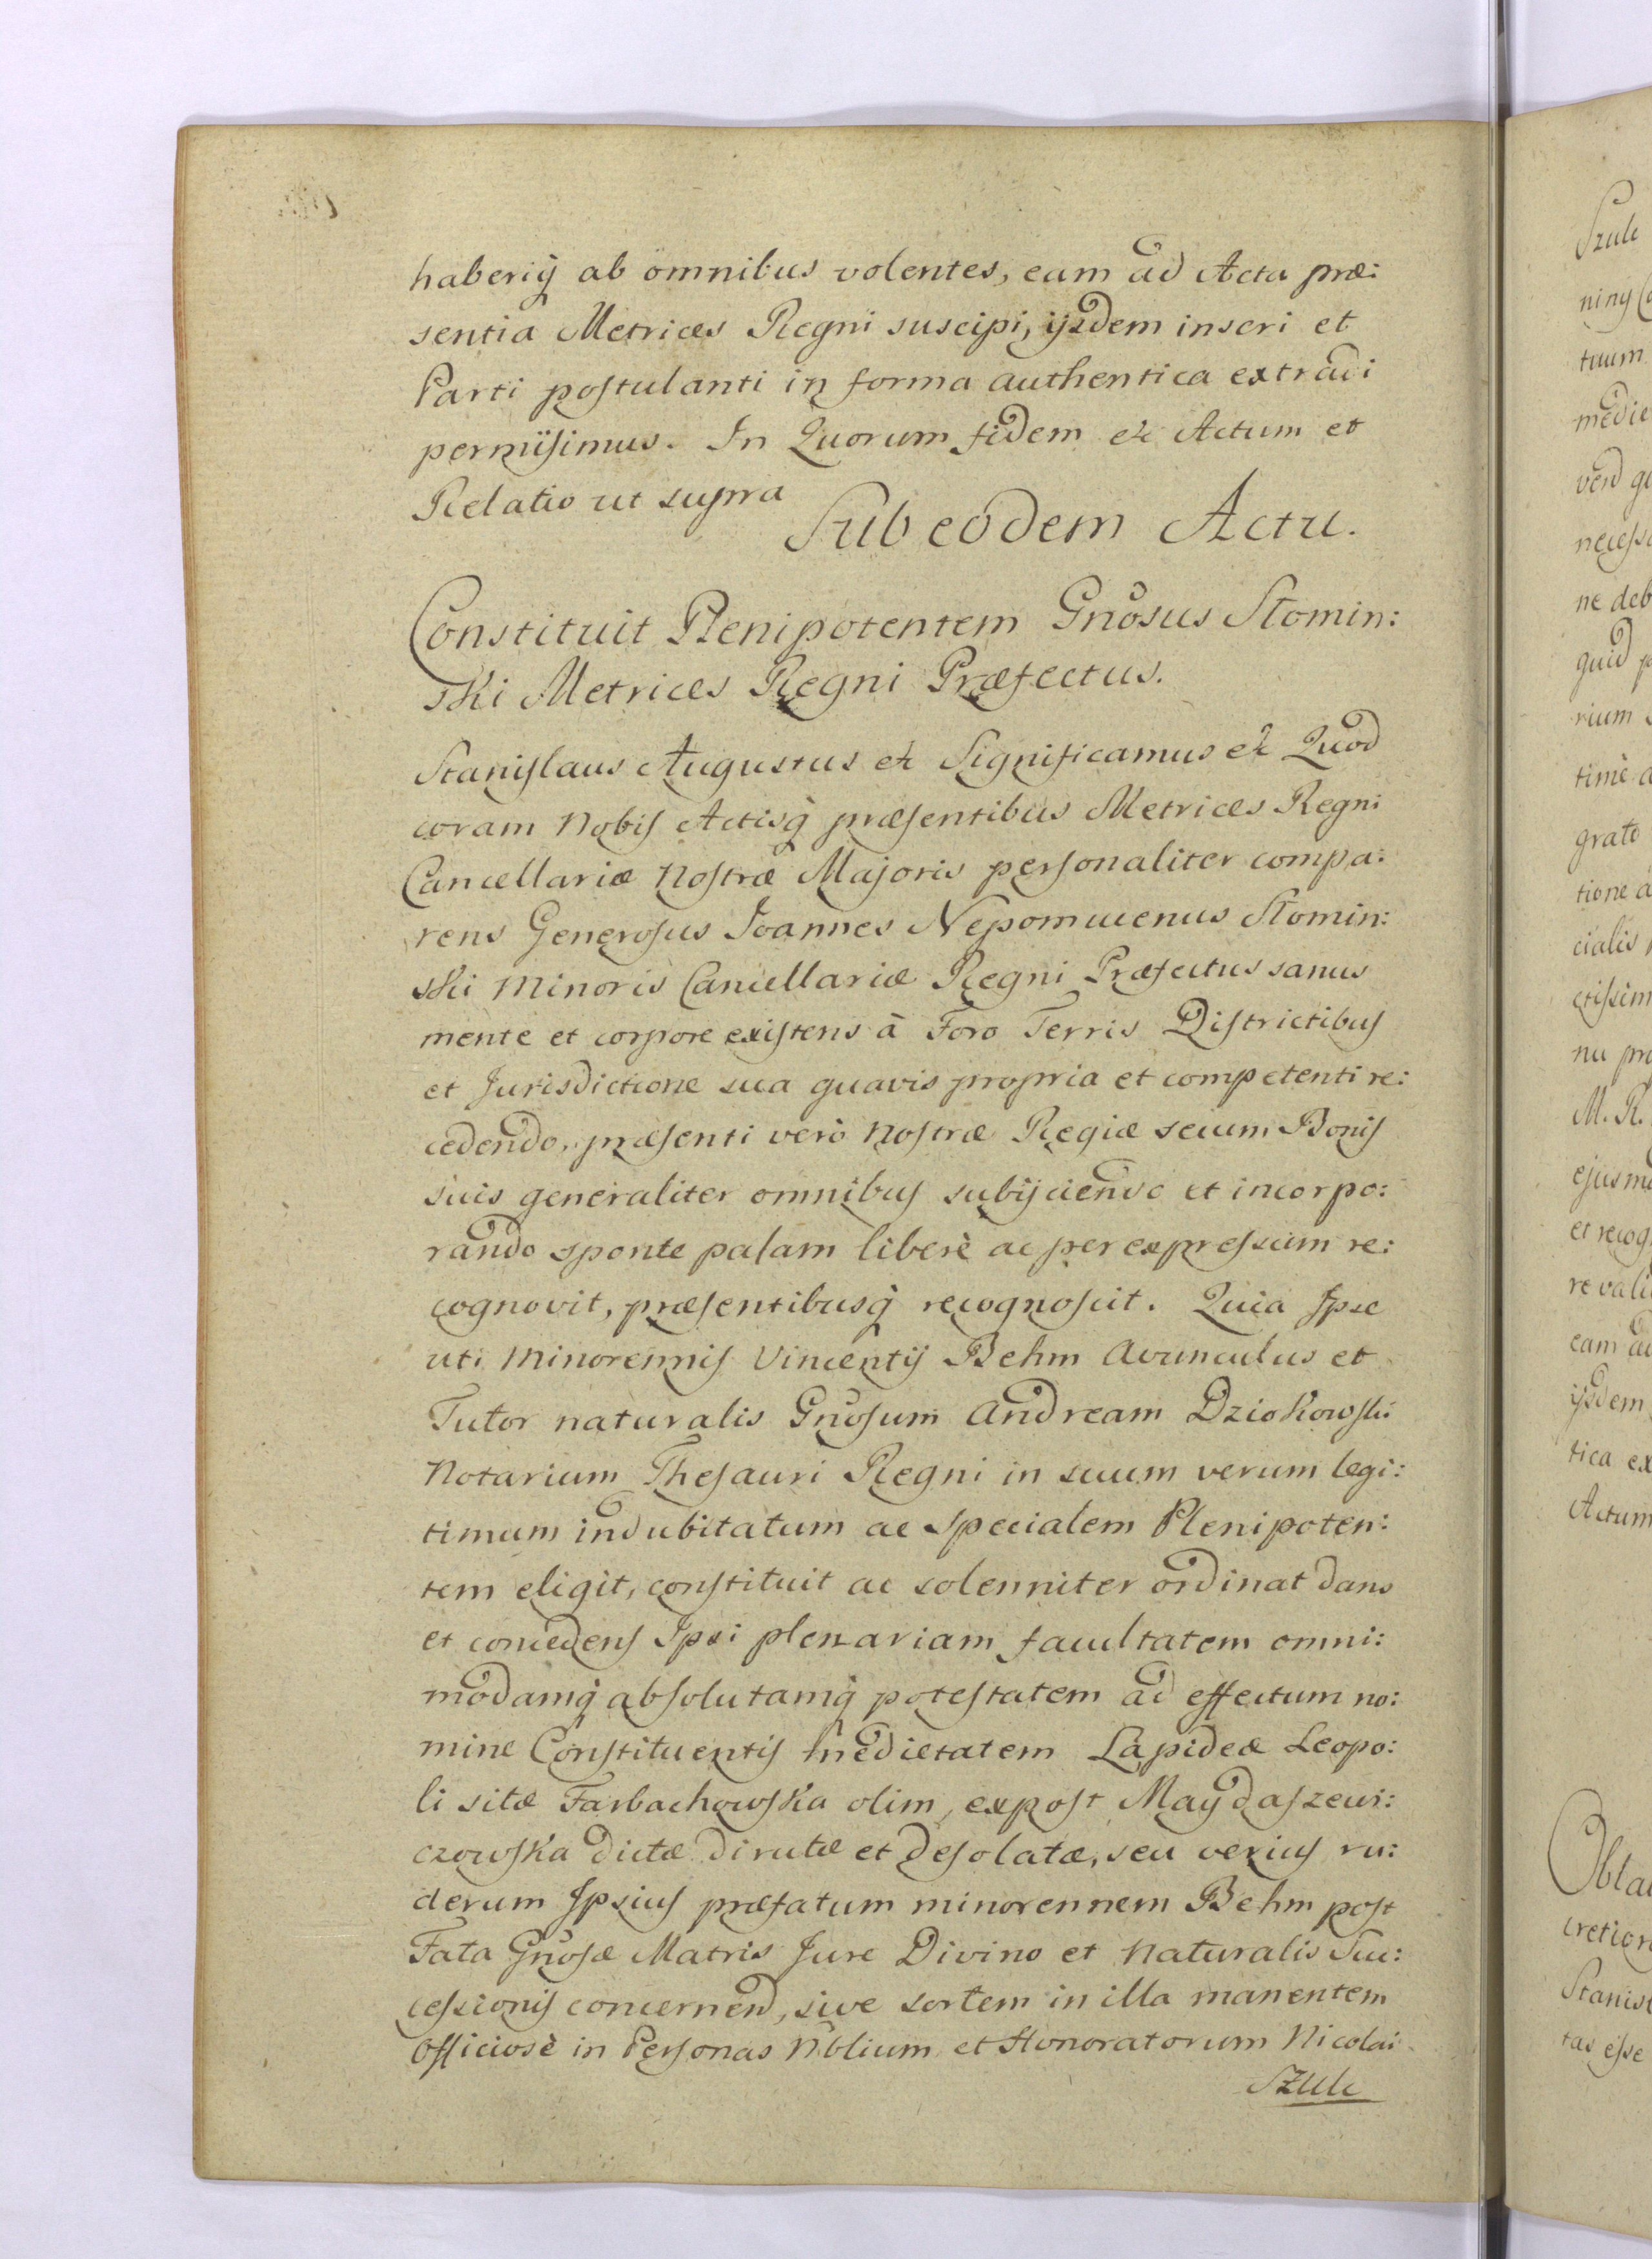 haberiq̀ ab omnibus volentes, eam ad Acta præ:
sentia Metrices Regni suscipi, ijsdem inseri et
Parti postulanti in forma authentica extradi
permisimus. In Quorum fidem etc Actum et
Relatio ut supra
Sub eodem Actu.
Constituit Plenipotentem Gnosus Słomin:
ski Metrices Regni Præfectus.
Stanislaus Augustus etc Significamus etc Quod
coram Nobis Actisq̀ præsentibus Metrices Regni
Cancellariæ Nostræ Majoris personaliter compa:
rens Generosus Joannes Nepomucenus Słomin:
ski Minoris Cancellariæ Regni Præfectus sanus
mente et corpore existens à Foro Terris Districtibus
et Jurisdictione sua quavis propria et competenti re:
cedendo, præsenti verò Nostræ Regiæ secum Bonis
suis generaliter omnibus subijciendo et incorpo:
rando sponte palam liberè ac per expressum re:
cognovit, præsentibusq̀ recognoscit. Quia Ipse
uti Minorennis Vincentij Behm Avunculus et
Tutor naturalis Gnosum Andream Dziokowski
Notarium Thesauri Regni in suum verum legi:
timum indubitatum ac specialem Plenipoten:
tem eligit, constituit ac solenniter ordinat dans
et concedens Ipsi plenariam facultatem omni:
modamq̀ absolutamq̀ potestatem ad effectum no:
mine Constituentis medietatem Lapideæ Leopo:
li sitæ Farbachowska olim, expost Maydaszewi:
czowska dictæ dirutæ et desolatæ, seu verius ru:
derum Ipsius præfatum minorennem Behm post
Fata Gnosæ Matris Jure Divino et Naturalis Suc:
cessionis concernend, sive sortem in illa manentem
Officiosè in Personas Nblium et Honoratorum Nicolai
Szulc